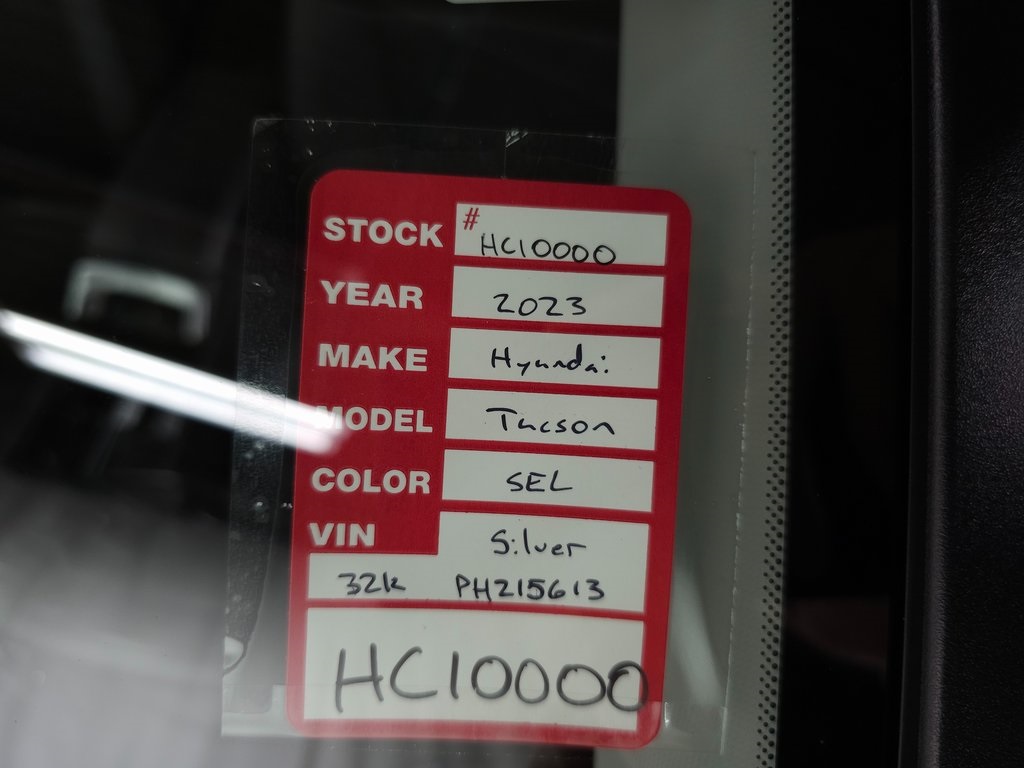 STOCK # HC10000
YEAR 2023
MAKE Hyundai
MODEL Tucson
COLOR SEL
VIN Silver
32k PH215613
HC10000